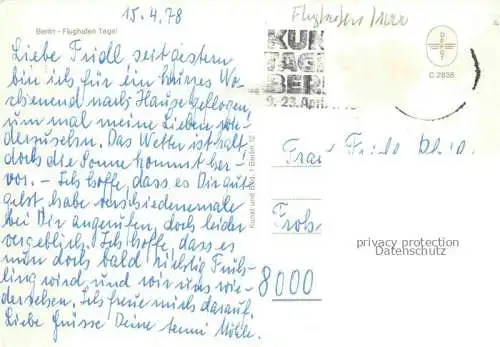 15.4.78
Flughafen
Berlin - Flughafen Tegel
Liebe Fridl seit gestern
bin ich für ein kurzes Wo-
chenend nach Hause geflogen,
um mal meine Lieben wie-
derzusehn. Das Wetter ist kalt
doch die Sonne kommt her-
vor. – Ich hoffe, dass es Dir gut
geht, habe verschiedenemale
bei Dir angerufen, doch leider
vergeblich. Ich hoffe, dass es
nun doch bald richtig Früh-
ling wird und wir uns wie-
dersehen. Ich freue mich darauf.
Liebe Grüsse Deine
KUR
TAG
BERL
9.-23. April
C 2838
Kunst und Bild, 1 Berlin 12
Frau
8000
privacy protection
Datenschutz